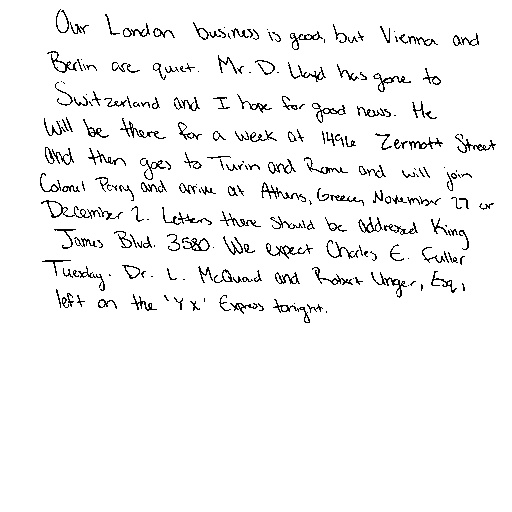 Our London business is good, but Vienna and
Berlin are quiet. Mr. D. Lloyd has gone to
Switzerland and I hope for good news. He
will be there for a week at 1496 Zermott Street
and then goes to Turin and Rome and will join
Colonel Parry and arrive at Athens, Greece, November 27 or
December 2. Letters there should be addressed King
James Blvd. 3580. We expect Charles E. Fuller
Tuesday. Dr. L. McQuaid and Robert Unger, Esq.,
left on the 'Y X' Express tonight.